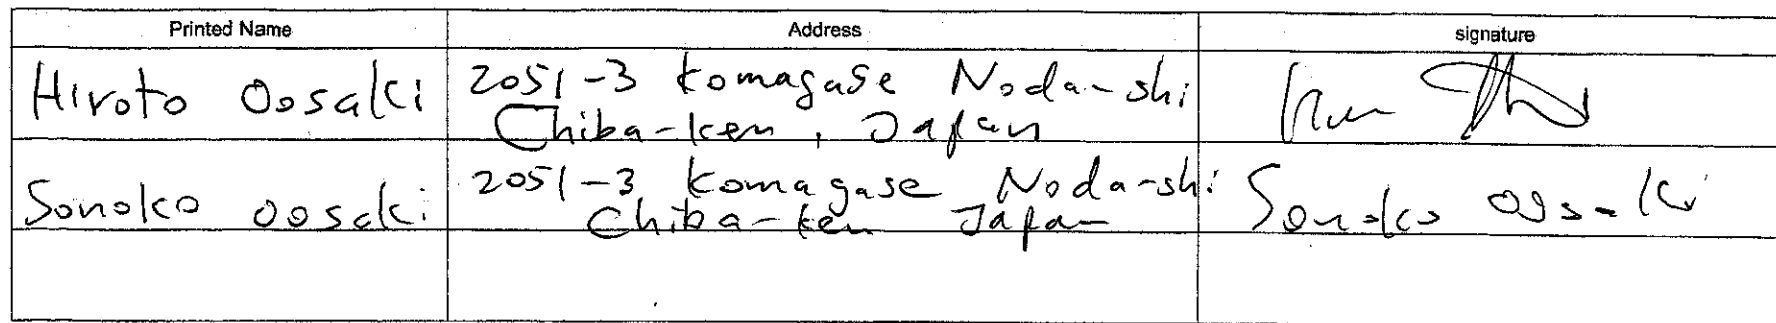 Printed Name Address signature
Hiroto Oosaki 2051-3 Komagase Noda-shi
Chiba-ken, Japan
Sonoko oosaki 2051-3 Komagase Noda-shi Sonoko oosaki
Chiba-ken Japan